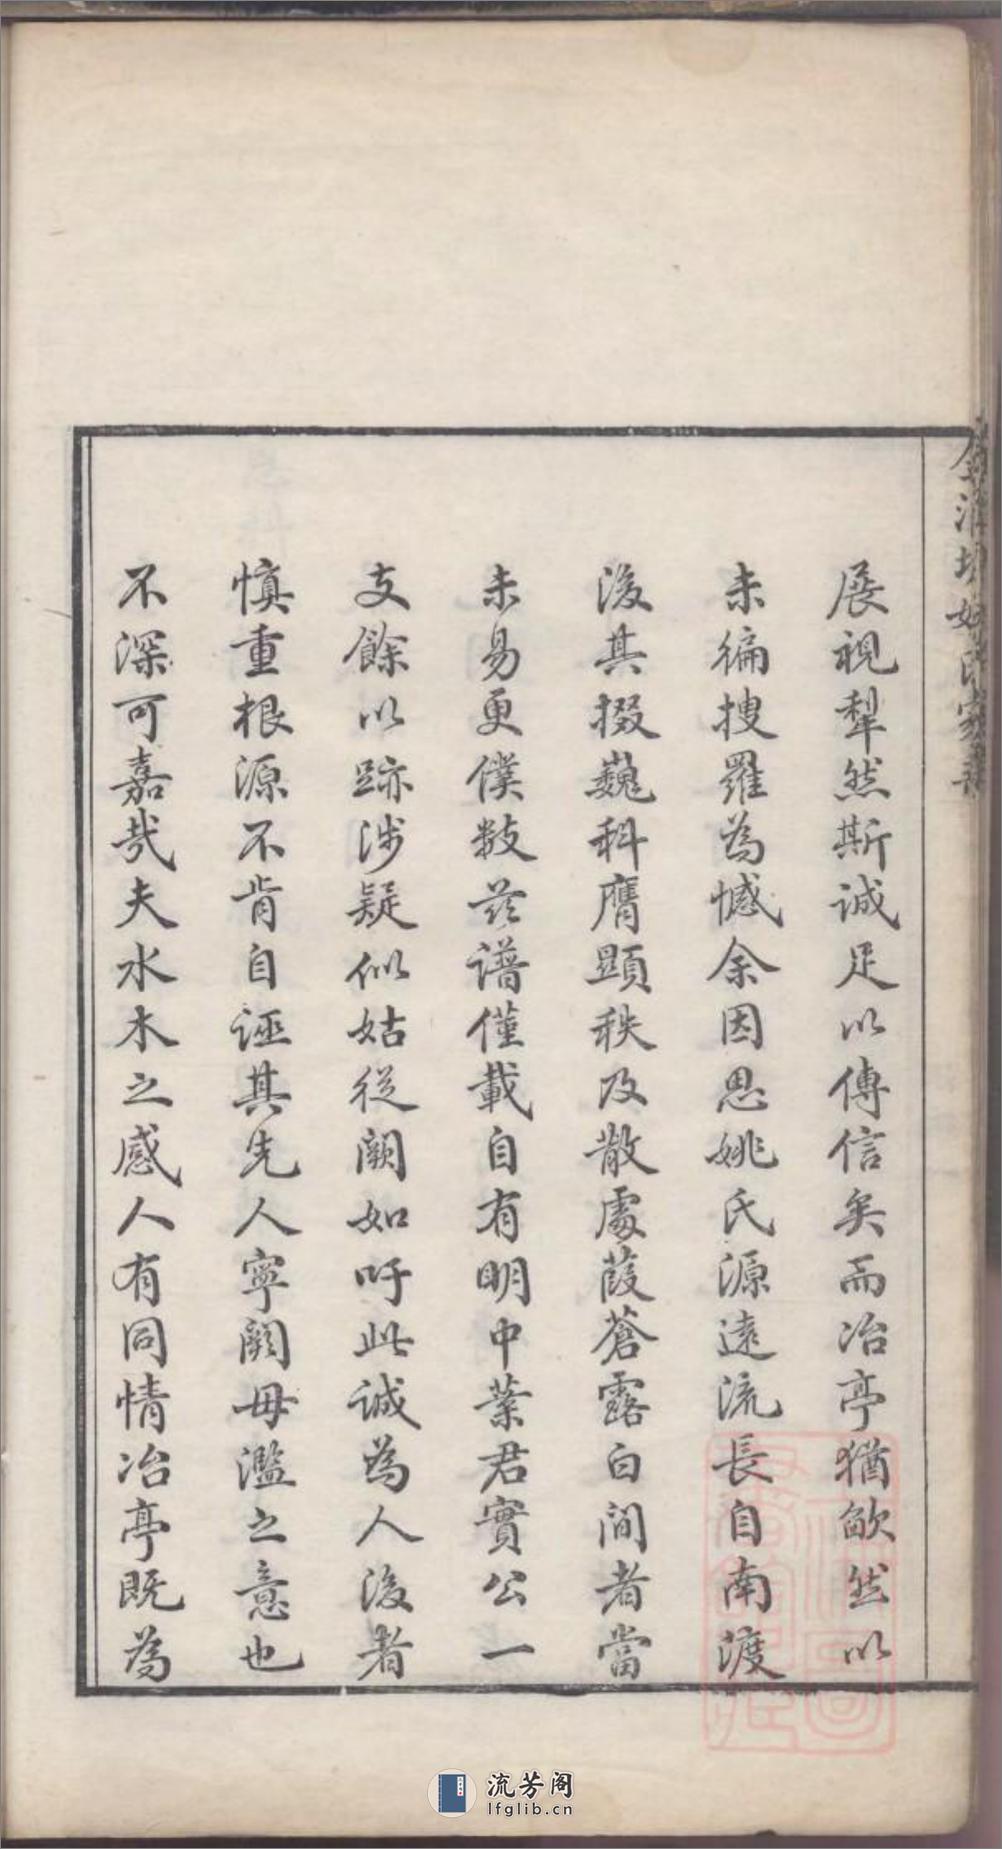 展視犁然斯誠足以傳信矣而冶亭猶歉然以
未徧搜羅為憾余因思姚氏源遠流長自南渡
後其掇巍科膺顯秩及散處葭蒼露白間者當
未易更僕數茲譜僅載自有明中葉君實公一
支餘以跡涉疑似姑從闕如吁此誠為人後者
慎重根源不肯自誣其先人寧闕毋濫之意也
不深可嘉哉夫水木之感人有同情冶亭既為
流芳阁
lfglib.cn